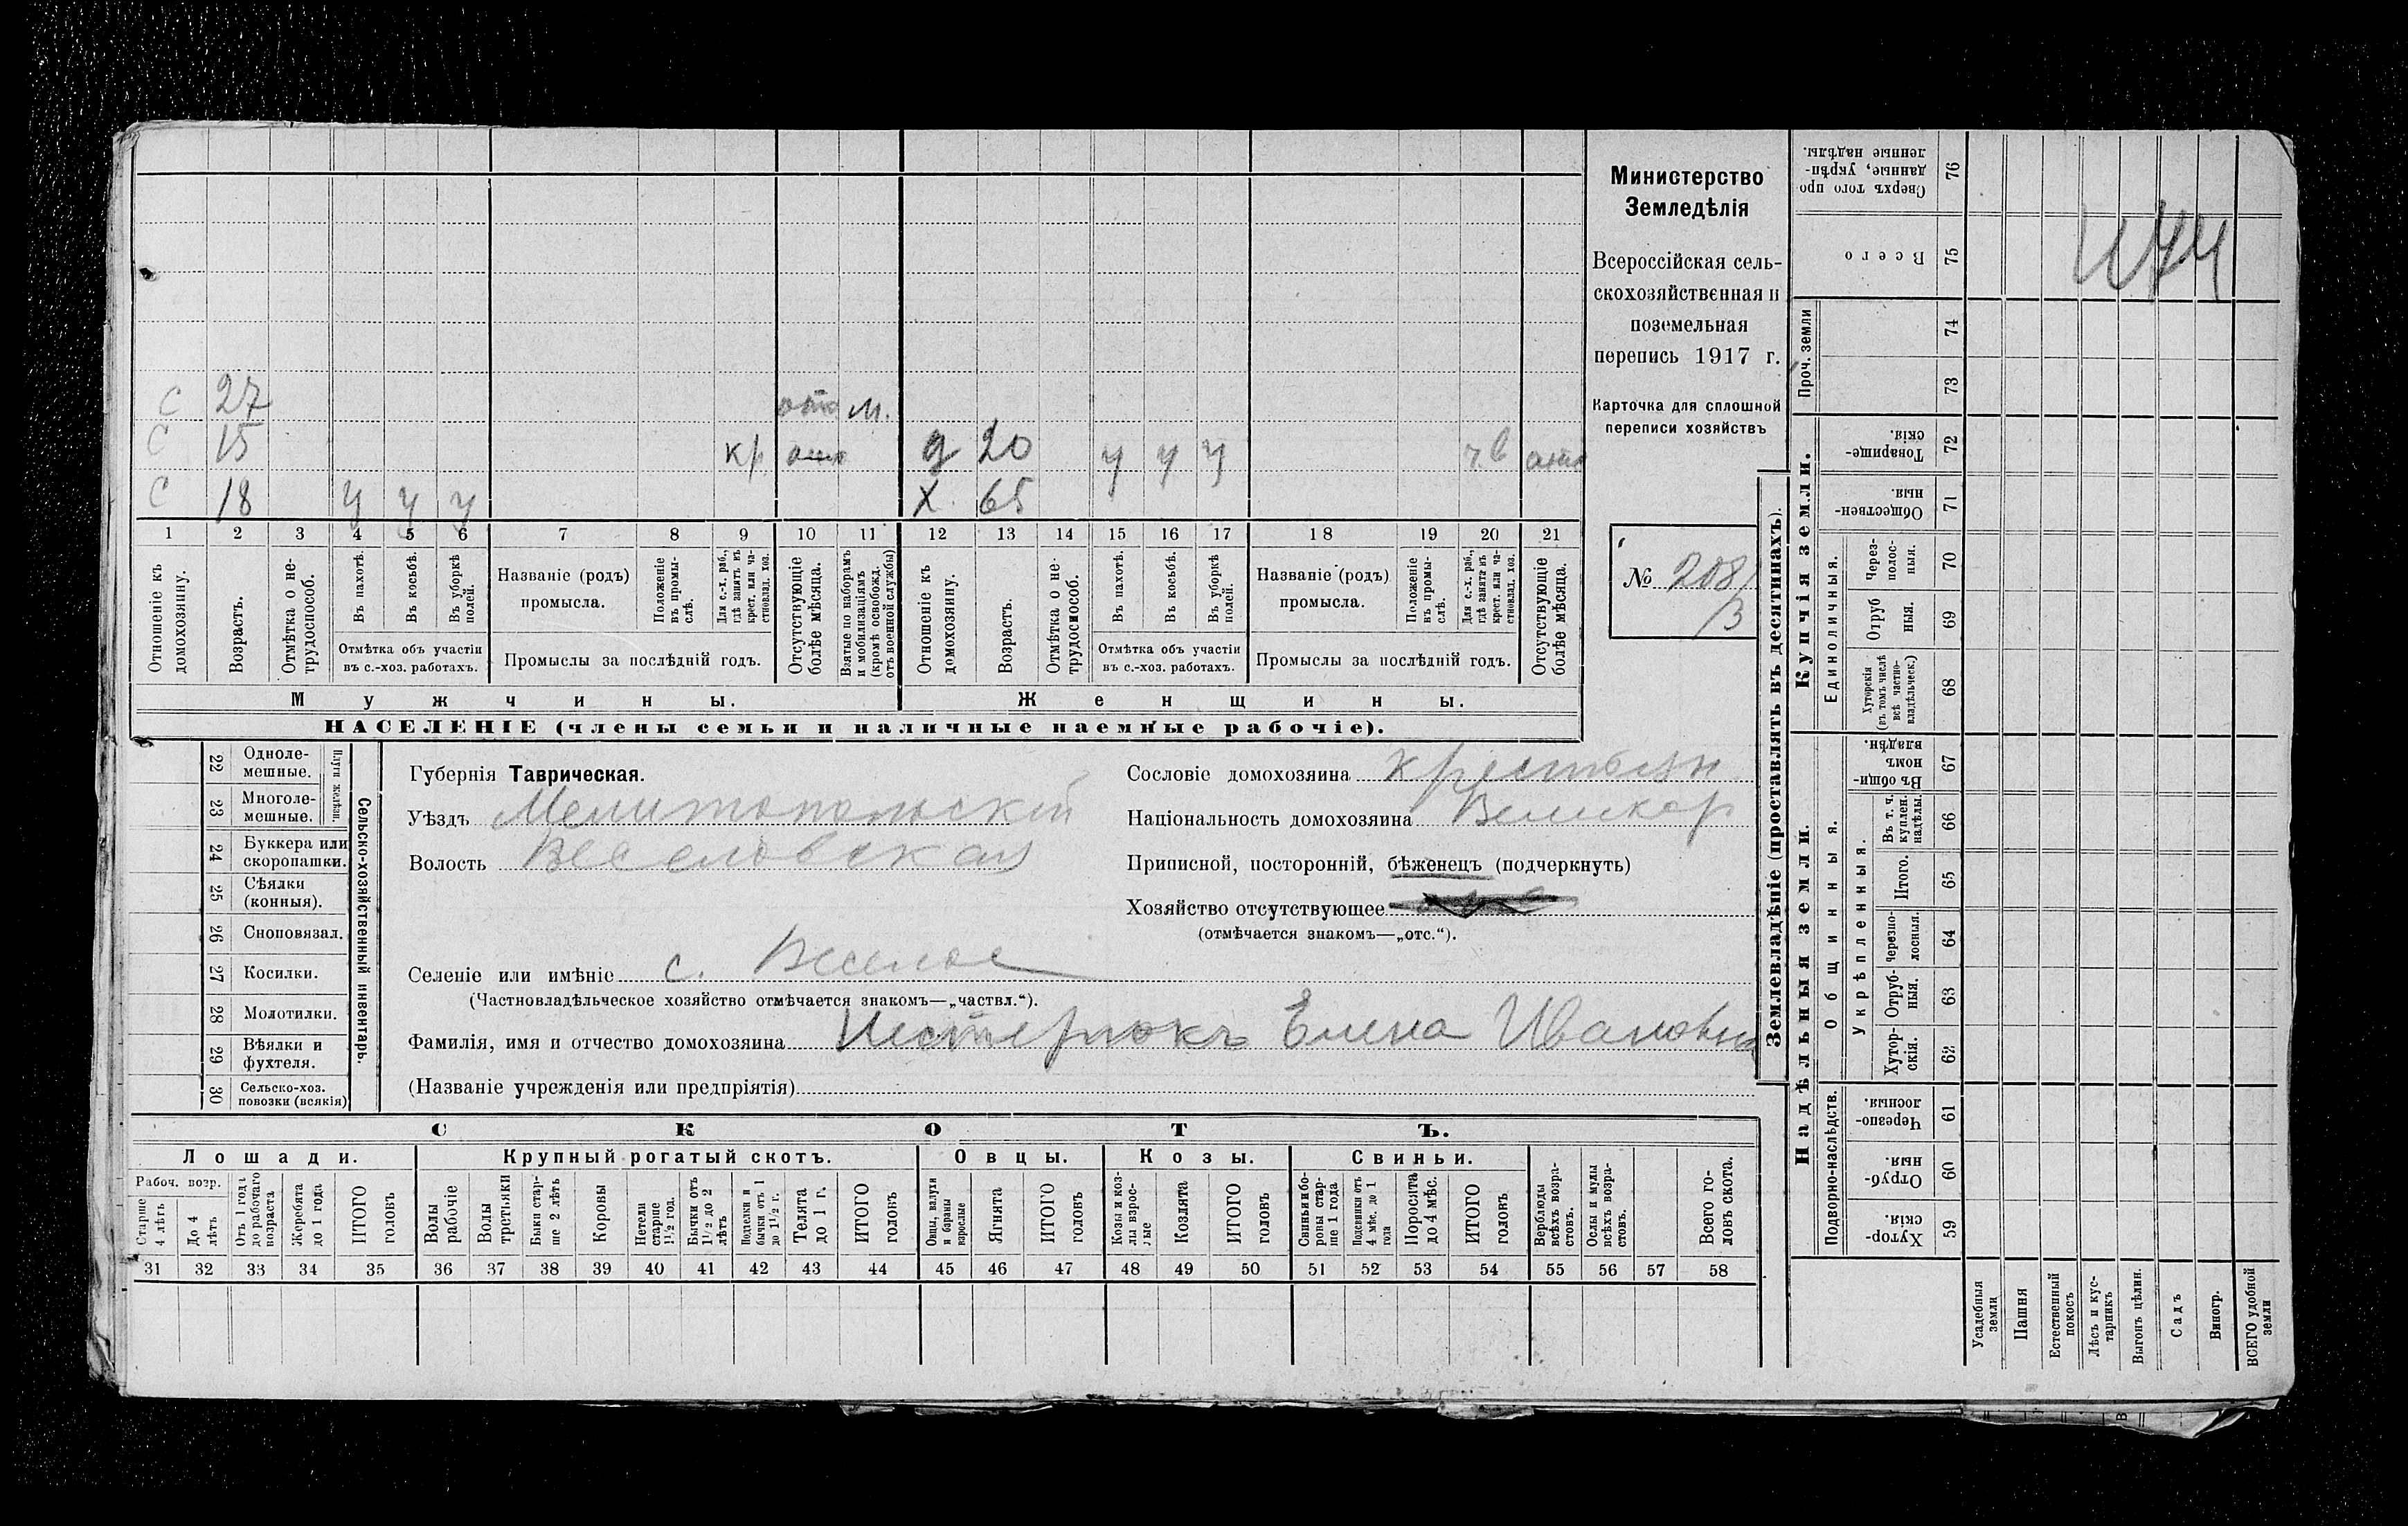 С 27 отс м.
С 15 кр. отс д 20 у у у чв отс
С 18 у у у х. 65
1 2 3 4 5 6 7 8 9 10 11 12 13 14 15 16 17 18 19 20 21
Отношеніе къ домохозяину.
Возрастъ.
Отмѣтка о нетрудоспособ.
Въ пахотѣ.
Въ косьбѣ.
Въ уборкѣ полей.
Отмѣтка объ участіи
въ с.-хоз. работахъ.
Названіе (родъ)
промысла.
Положеніе въ промыслѣ.
Для с.-х. раб., гдѣ занятъ въ крест. или частновлад. хоз.
Промыслы за послѣдній годъ.
Отсутствующіе болѣе мѣсяца.
Взятые по наборамъ и мобилизаціямъ (кромѣ освобожд. отъ военной службы)
Отношеніе къ домохозяину.
Возрастъ.
Отмѣтка о нетрудоспособ.
Въ пахотѣ.
Въ косьбѣ.
Въ уборкѣ полей.
Отмѣтка объ участіи
въ с.-хоз. работахъ.
Названіе (родъ)
промысла.
Положеніе въ промыслѣ.
Для с.-х. раб., гдѣ занята въ крест. или частновлад. хоз.
Промыслы за послѣдній годъ.
Отсутствующіе болѣе мѣсяца.
Мужчины. Женщины.
НАСЕЛЕНІЕ (члены семьи и наличные наемные рабочіе).
Министерство
Земледѣлія
Всероссійская сель-
скохозяйственная и
поземельная
перепись 1917 г.
Карточка для сплошной
переписи хозяйствъ
№ 208
22 Однолемешные.
23 Многолемешные.
Плуги желѣзн.
24 Буккера или скоропашки.
25 Сѣялки (конныя).
26 Сноповязал.
27 Косилки.
28 Молотилки.
29 Вѣялки и фухтеля.
30 Сельско-хоз. повозки (всякія)
Сельско-хозяйственный инвентарь.
Губернія Таврическая.
Уѣздъ Мелитопольскій
Волость Веселовская
Сословіе домохозяина крестьян
Національность домохозяина Великор
Приписной, посторонній, бѣженецъ (подчеркнуть)
Хозяйство отсутствующее
(отмѣчается знакомъ—„отс.“).
Селеніе или имѣніе с. Веселое
(Частновладѣльческое хозяйство отмѣчается знакомъ—„частвл.“).
Фамилія, имя и отчество домохозяина Нестерюкъ Елена Ивановна
(Названіе учрежденія или предпріятія)
СКОТЪ.
Лошади. Крупный рогатый скотъ. Овцы. Козы. Свиньи.
Рабоч. возр.
Старше 4 лѣтъ
До 4 лѣтъ
Отъ 1 года до рабочаго возраста
Жеребята до 1 года
ИТОГО головъ
Волы рабочіе
Волы третьяки
Быки старше 2 лѣтъ
Коровы
Нетели старше 1½ год.
Бычки отъ 1½ до 2 лѣтъ
Подтелки и бычки отъ 1 до 1½ г.
Телята до 1 г.
ИТОГО головъ
Овцы, валухи и бараны взрослые
Ягнята
ИТОГО головъ
Козы и козлы взрослые
Козлята
ИТОГО головъ
Свиньи и боровы старше 1 года
Подсвинки отъ 4 мѣс. до 1 года
Поросята до 4 мѣс.
ИТОГО головъ
Верблюды всѣхъ возрастовъ.
Ослы и мулы всѣхъ возрастовъ.
Всего головъ скота.
31 32 33 34 35 36 37 38 39 40 41 42 43 44 45 46 47 48 49 50 51 52 53 54 55 56 57 58
Землевладѣніе (проставлять въ десятинахъ).
Сверхъ того проданные, укрѣпленные надѣлы. 76
Всего 75
Проч. земли 74 73
Купчія земли.
Товарищескія. 72
Общественныя. 71
Единоличныя.
Черезполосныя. 70
Отрубныя. 69
Хуторскія (въ томъ числѣ всѣ частновладѣльческ.) 68
Надѣльныя земли.
Общинныя.
Въ общинномъ владѣн. 67
Укрѣпленныя.
Въ т. ч. куплен. надѣлы. 66
Итого. 65
Черезполосныя. 64
Отрубныя. 63
Хуторскія. 62
Подворно-наслѣдств.
Черезполосныя. 61
Отрубныя. 60
Хуторскія. 59
Усадебныя земли
Пашня
Естественный покосъ
Лѣсъ и кустарникъ
Выгонъ цѣлин.
Садъ
Виногр.
ВСЕГО удобной земли